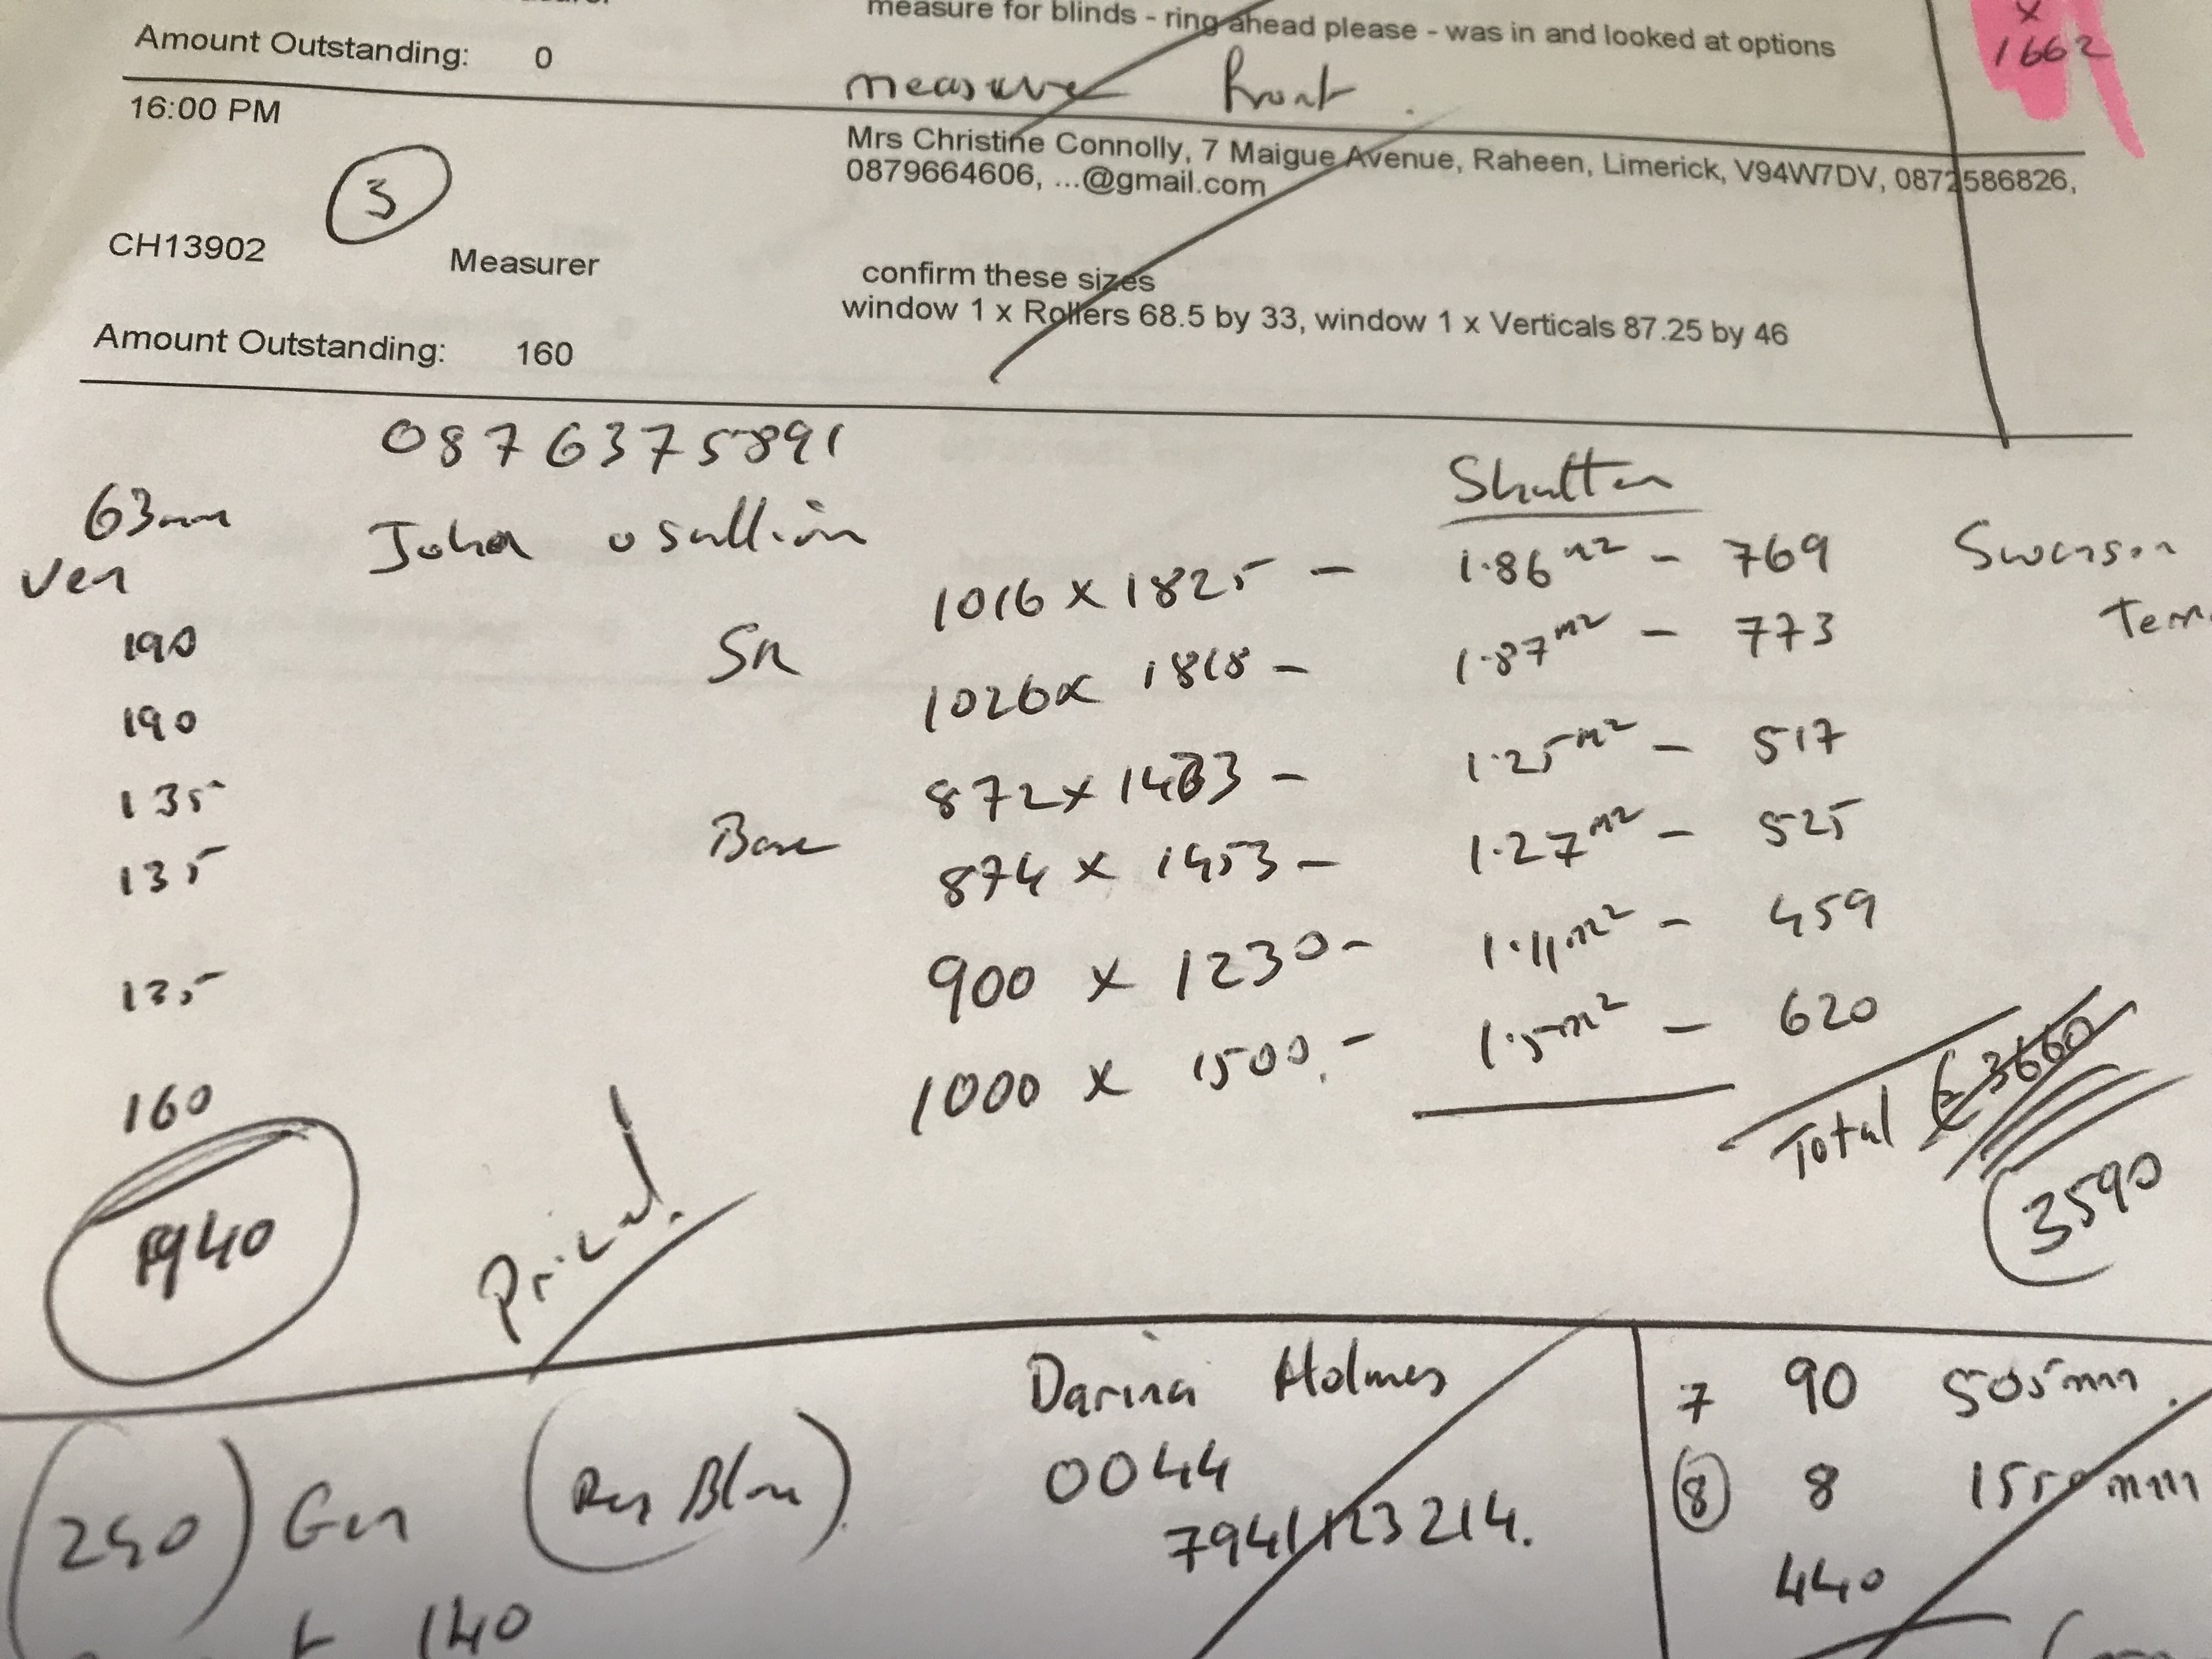 Amount Outstanding: 0
measure for blinds - ring ahead please - was in and looked at options
x
1662
measure front
16:00 PM
3
Mrs Christine Connolly, 7 Maigue Avenue, Raheen, Limerick, V94W7DV, 0872586826,
0879664606, ...@gmail.com
CH13902 Measurer
confirm these sizes
window 1 x Rollers 68.5 by 33, window 1 x Verticals 87.25 by 46
Amount Outstanding: 160
0876375891
Shutter
63mm John osullivin
Ven
1016 x 1825 - 1.86m2 - 769
190 1026x 1818 - 1.87m2 - 773
190 872x 1433 - 1.25m2 - 517
135 874 x 1453 - 1.27m2 - 525
135 900 x 1230 - 1.11m2 - 459
135 1000 x 1500. - 1.5m2 - 620
160
Total €3660
3590
940
Priced.
Darina Holmes
0044
7941123214.
7 90 505mm.
8 8 mm
440
(250)
140